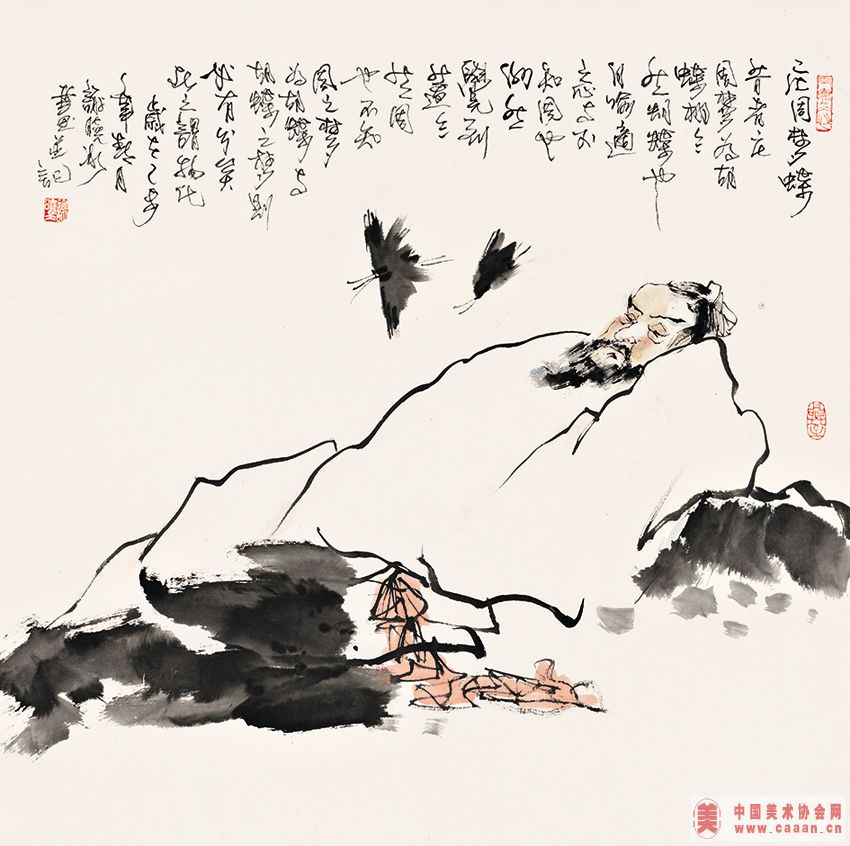 庄周梦蝶
昔者庄
周梦为胡
蝶栩々
然胡蝶也
自喻適
志与不
知周也
俄然
觉则
蘧々
然周
也不知
周之梦
为胡蝶与
胡蝶之梦则
必有分矣
此之謂物化
歲在乙未
月
画并记
中国美术协会网
www.caaan.cn